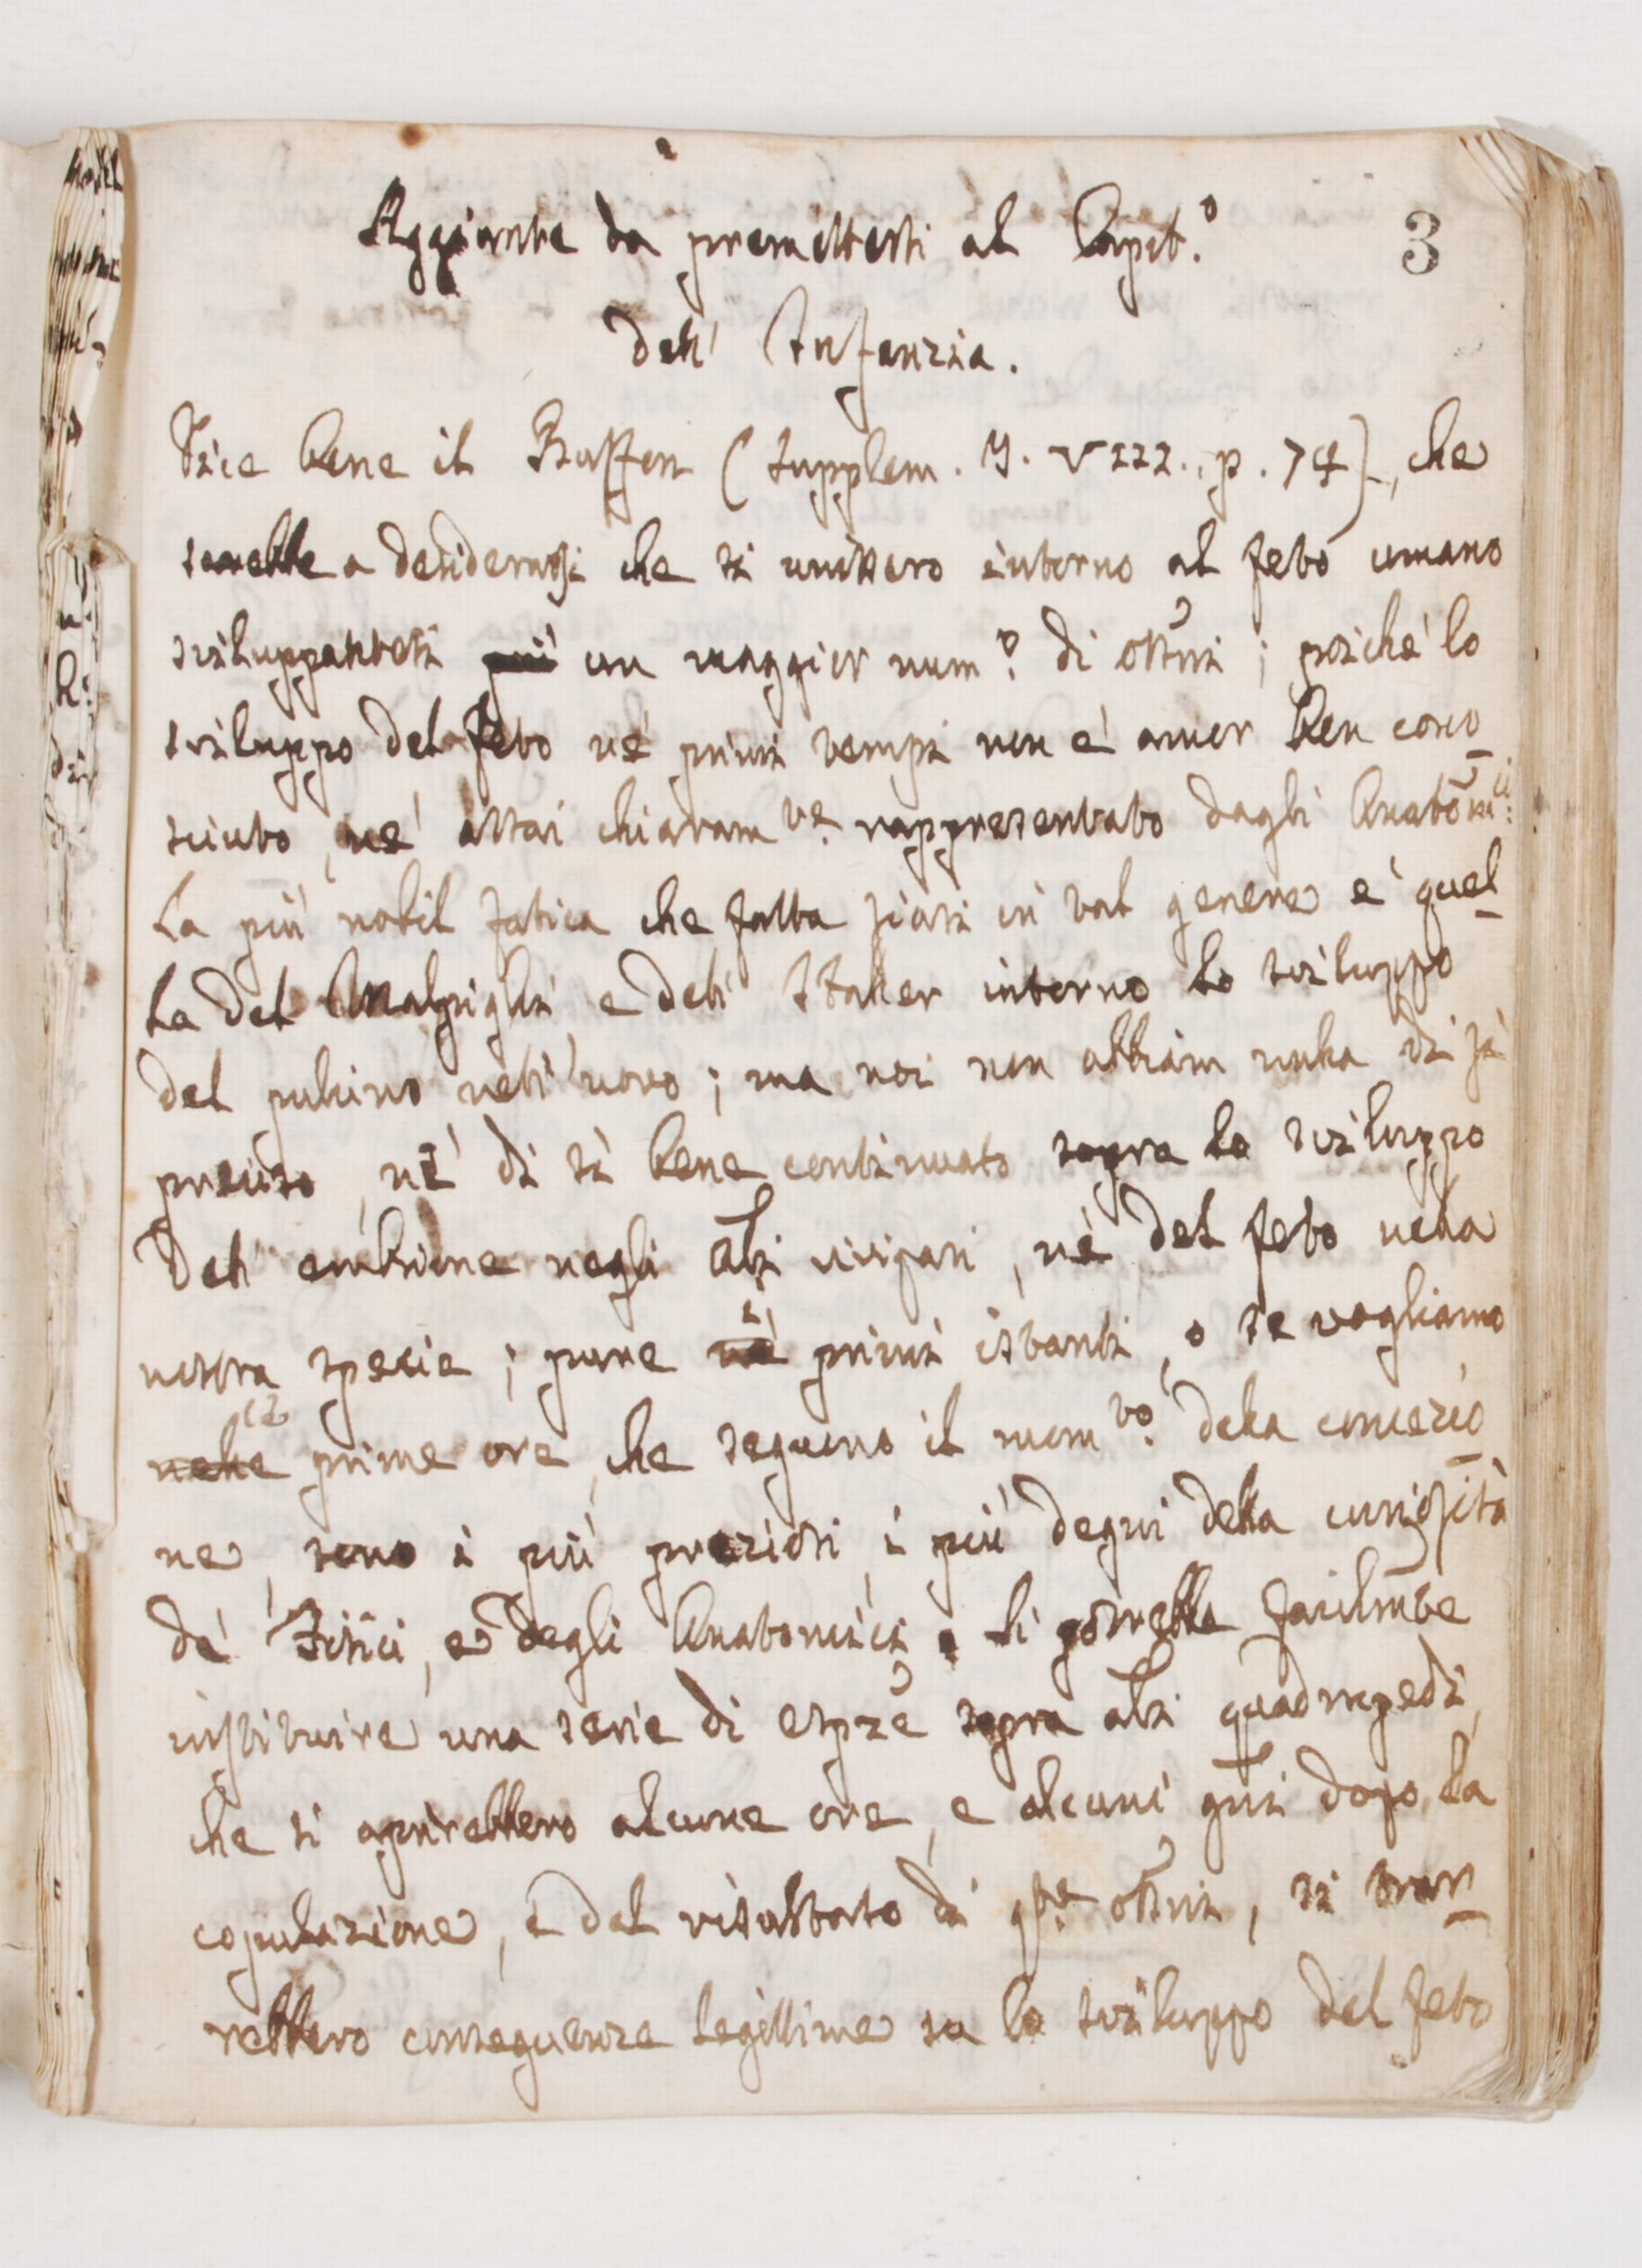 Aggiunte da premettersi al Capit.º
3
dell' Infanzia.
Dice bene il Buffon (supplem. T. VIII. p. 74), che
sarebbe a desiderarsi che si unissero intorno al feto umano
sviluppantesi più un maggior num.º di ossni; poichè lo
sviluppo del feto ne' primi tempi non è ancor ben cono
sciuto, nè assai chiaram.te rappresentato dagli Anatomici.
La più nobil fatica che fatta siasi in tal genere è quel
la del Malpighi, e dell' Haller intorno lo sviluppo
del pulcino nell' uovo; ma noi non abbiam nulla di sì
preciso, nè di sì bene continuato sopra lo sviluppo
dell' embrione negli altri vivipari, nè del feto nella
nostra specie; pure ne' i primi istanti, o se vogliamo
nelle le prime ore, che seguono il mom.to della concezio
ne, sono i più preziosi, i più degni della curiosità
de' Fisici, e degli Anatomici. Si potrebbe facilmte
instituire una serie di espze sopra altri quadrupedi,
che si aprirebbero alcune ore, e alcuni gni dopo la
copulazione, e dal risultato di qte ossni, si trar
rebbero conseguenze legittime su lo sviluppo del feto